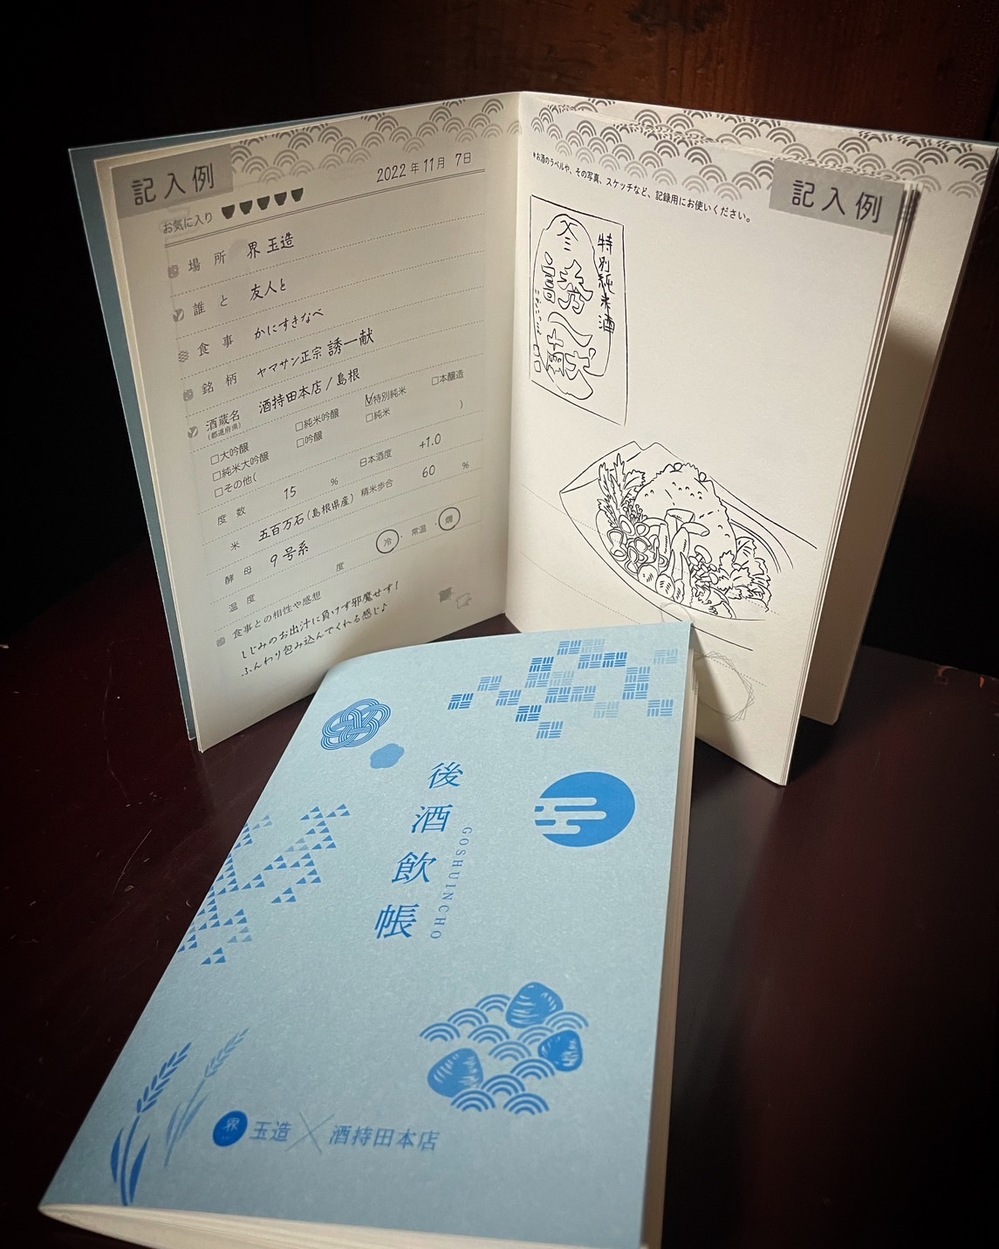 記入例
2022年11月7日
お気に入り
場所 界 玉造
誰と 友人と
食事 かにすきなべ
銘柄 ヤマサン正宗 誘一献
酒蔵名 酒持田本店 / 島根
(都道府県)
□大吟醸 □純米吟醸 ☑特別純米 □本醸造
□純米大吟醸 □吟醸 □純米
□その他( )
度数 15 % 日本酒度 +1.0
米 五百万石(島根県産) 精米歩合 60 %
酵母 9号系
温度 度 冷・常温・燗
食事との相性や感想
しじみのお出汁に負けず邪魔せず!
ふんわり包み込んでくれる感じ♪
*お酒のラベルや、その写真、スケッチなど、記録用にお使いください。
記入例
特別純米酒
誘一献
後酒飲帳
GOSHUINCHO
界 玉造×酒持田本店